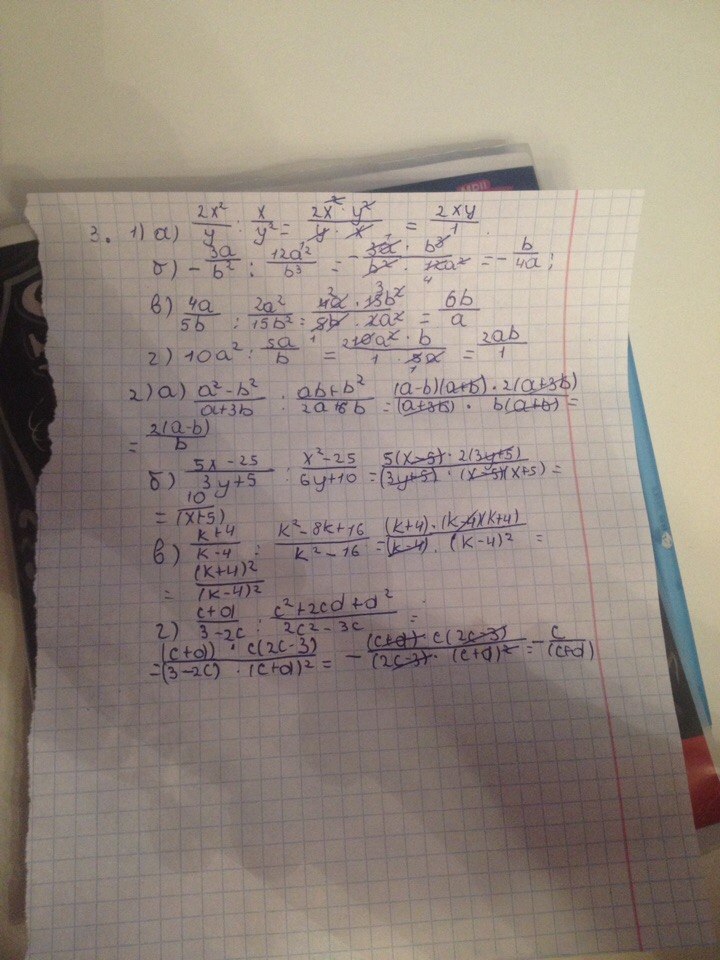 3. 1) а) 2x²/y : x/y² = 2x² · y²/y · x = 2xy/1.
б) - 3a/b² : 12a²/b³ = - 3a · b³/b² · 12a² = - b/4a;
в) 4a/5b : 2a²/15b² = 4a · 15b²/5b · 2a² = 6b/a
г) 10a² : 5a/b = 10a² · b/1 · 5a = 2ab/1
2) а) a²-b²/a+3b : ab+b²/2a+6b = (a-b)(a+b) · 2(a+3b)/(a+3b) · b(a+b) =
= 2(a-b)/b
б) 5x-25/3y+5 : x²-25/6y+10 = 5(x-5) · 2(3y+5)/(3y+5) · (x-5)(x+5) =
= 10/(x+5)
в) k+4/k-4 : k²-8k+16/k²-16 = (k+4) · (k-4)(k+4)/(k-4) · (k-4)² =
= (k+4)²/(k-4)²
г) c+d/3-2c : c²+2cd+d²/2c²-3c =
= (c+d) · c(2c-3)/(3-2c) · (c+d)² = - (c+d) · c(2c-3)/(2c-3) · (c+d)² = - c/(c+d)